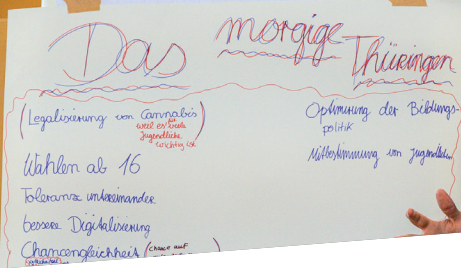 Das morgige Thüringen
(Legalisierung von Cannabis)
weil es für viele
Jugendliche
wichtig ist
Wahlen ab 16
Toleranz untereinander
bessere Digitalisierung
Chancengleichheit (chance auf
Optimirung der Bildungs-
politik
Mitbestimmung von Jugendlichen